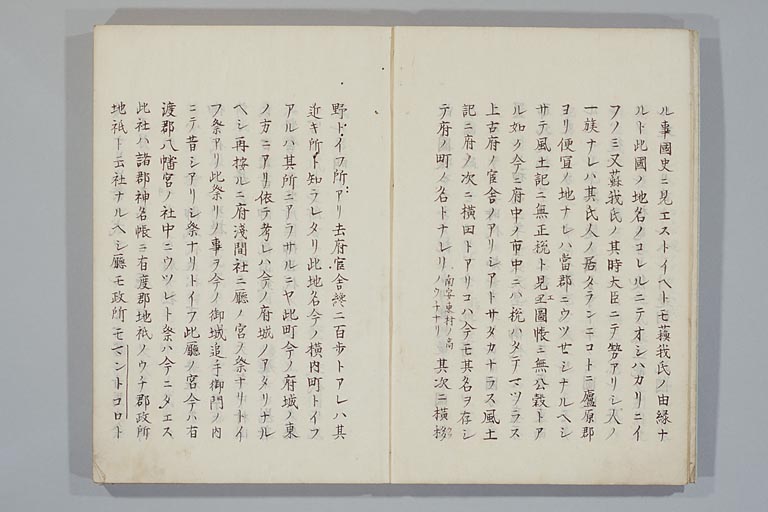 ル事國史ニ見エストイヘトモ蘓我氏ノ由縁ナ
ルト此國ノ地名ノコレルニテオシハカリニイ
フノミ又蘇我氏ノ其時大臣ニテ勢アリシ人ノ
一族ナレハ其氏人ノ居タランニコトニ廬原郡
ヨリ便宜ノ地ナレハ當郡ニウツセシナルヘシ
サテ風土記ニ無正税ト見エ圖帳ニ無公穀トア
ル如ク今ニ府中ノ市中ニハ税ハタテマツラス
上古府ノ官舎ノアリシアトサタカナラス風土
記ニ府ノ次ニ横田トアリコハ今モ其名ヲ存シ
テ府ノ町ノ名トナレリ南安東村ノ高ノクチナリ其次ニ横
野ト イフ所アリ去府官舎纔ニ百歩トアレハ其
近キ所ト知ラレタリ此地名今ノ横内町トイフ
アルハ其所ニアラサルニヤ此町今ノ府城ノ東
ノ方ニアリ依テ考レハ今ノ府城ノアタリナル
ヘシ再按ルニ府淺間社ニ廳ノ宮ノ祭ナリトイ
フ祭アリ此祭リノ事ヲ今ノ御城追手御門ノ内
ニテ昔シアリシ祭ナリトイフ此廳ノ宮今ハ有
渡郡八幡宮ノ社中ニウツレト祭ハ今ニタエス
此社ハ諸郡神名帳ニ有渡郡地祇ノウチ郡政所
地祇ト云社ナルヘシ廳モ政所モマントコロト